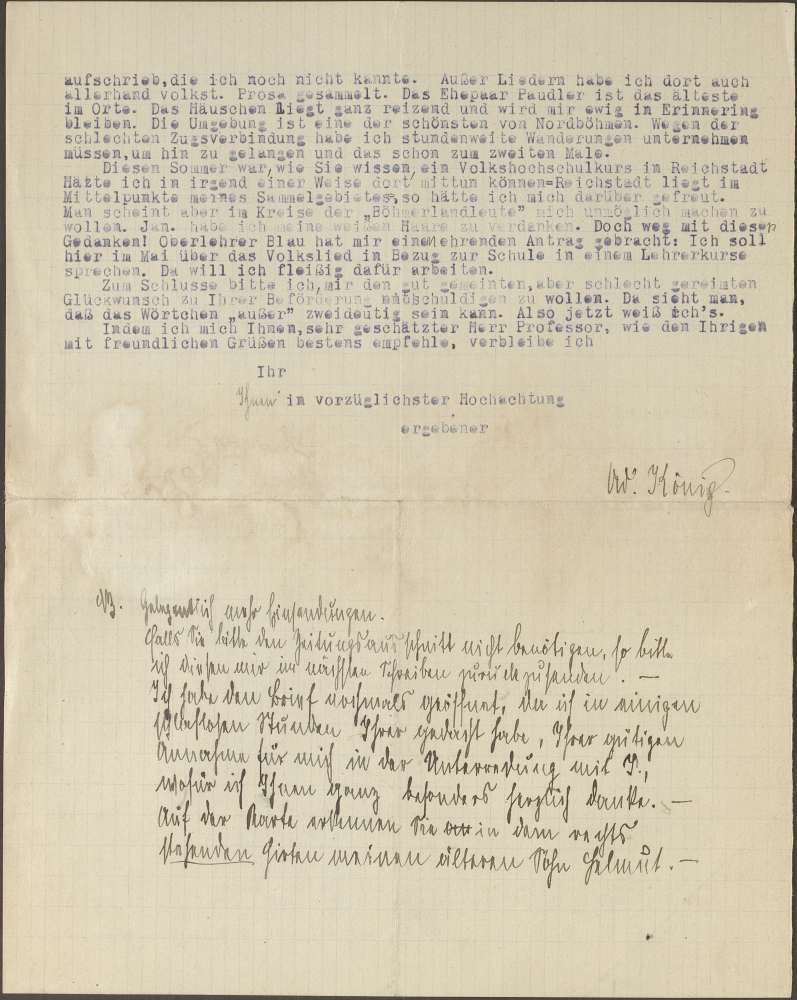 aufschrieb,die ich noch nicht kannte.  Außer Liedern habe ich dort auch
allerhand volkst. Prosa gesammelt. Das Ehepaar Paudler ist das älteste
im Orte. Das Häuschen liegt ganz reizend und wird mir ewig in Erinnering
bleiben. Die Umgebung ist eine der schönsten von Nordböhmen. Wegen der
schlechten Zugsverbindung habe ich stundenweite Wanderungen unternehmen
müssen,um hin zu gelangen und das schon zum zweiten Male.
Diesen Sommer war,wie Sie wissen,ein Volkshochschulkurs in Reichstadt
Hätte ich in irgend einer Weise dort mittun können=Reichstadt liegt im
Mittelpunkte meines Sammelgebietes=,so hätte ich mich darüber gefreut.
Man scheint aber im Kreise der „Böhmerlandleute" mich unmöglich machen zu
wollen. Jan. habe ich meine weißen Haare zu verdanken. Doch weg mit diesen
Gedanken! Oberlehrer Blau hat mir einen ehrenden Antrag gebracht: Ich soll
hier im Mai über das Volkslied in Bezug zur Schule in einem Lehrerkurse
sprechen. Da will ich fleißig dafür arbeiten.
Zum Schlusse bitte ich,mir den gut gemeinten,aber schlecht gereimten
Glückwunsch zu Ihrer Beförderung entschuldigen zu wollen. Da sieht man,
daß das Wörtchen „außer" zweideutig sein kann. Also jetzt weiß ich's.
Indem ich mich Ihnen,sehr geschätzter Herr Professor, wie den Ihrigen
mit freundlichen Grüßen bestens empfehle, verbleibe ich
Ihr
Ihnen in vorzüglichster Hochachtung
ergebener
Ad. König.
NB. Gelegentlich mehr Einsendungen.
Falls Sie bitte den Zeitungsausschnitt nicht benötigen, so bitte
ich diesen mir im nächsten Schreiben zurückzusenden. —
Ich habe den Brief nochmals geöffnet, da ich in einigen
schlaflosen Stunden Ihrer gedacht habe, Ihrer gütigen
Annahme für mich in der Unterredung mit J.,
wofür ich Ihnen ganz besonders herzlich danke. —
Auf der Karte erkennen Sie in dem rechts
stehenden Hirten meinen älteren Sohn Helmut. —